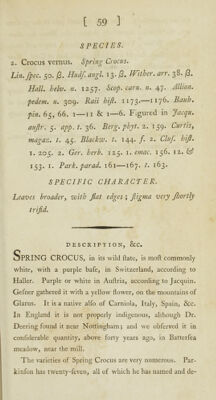 [ 59 ]
SPECIES.
2. Crocus vernus. Spring Crocus.
Lin. spec. 50. β. Hudſ. angl. 13. β. Wither. arr. 38. β.
Hall. helv. n. 1257. Scop. carn. n. 47. Allion.
pedem. n. 309. Raii hiſt. 1173.—1176. Bauh.
pin. 65, 66. 1—11 & 1—6. Figured in Jacqu.
auſtr. 5. app. t. 36. Berg. phyt. 2. 159. Curtis,
magaz. t. 45. Blackw. t. 144. f. 2. Cluſ. hiſt.
1. 205. 2. Ger. herb. 125. 1. emac. 156. 12. &
153. 1. Park. parad. 161—167. t. 163.
SPECIFIC CHARACTER.
Leaves broader, with flat edges; ſtigma very ſhortly
trifid.
DESCRIPTION, &c.
SPRING CROCUS, in its wild ſtate, is moſt commonly
white, with a purple baſe, in Switzerland, according to
Haller. Purple or white in Auſtria, according to Jacquin.
Geſner gathered it with a yellow flower, on the mountains of
Glarus. It is a native alſo of Carniola, Italy, Spain, &c.
In England it is not properly indigenous, although Dr.
Deering found it near Nottingham; and we obſerved it in
conſiderable quantity, above forty years ago, in Batterſea
meadow, near the mill.
The varieties of Spring Crocus are very numerous. Par-
kinſon has twenty-ſeven, all of which he has named and de-